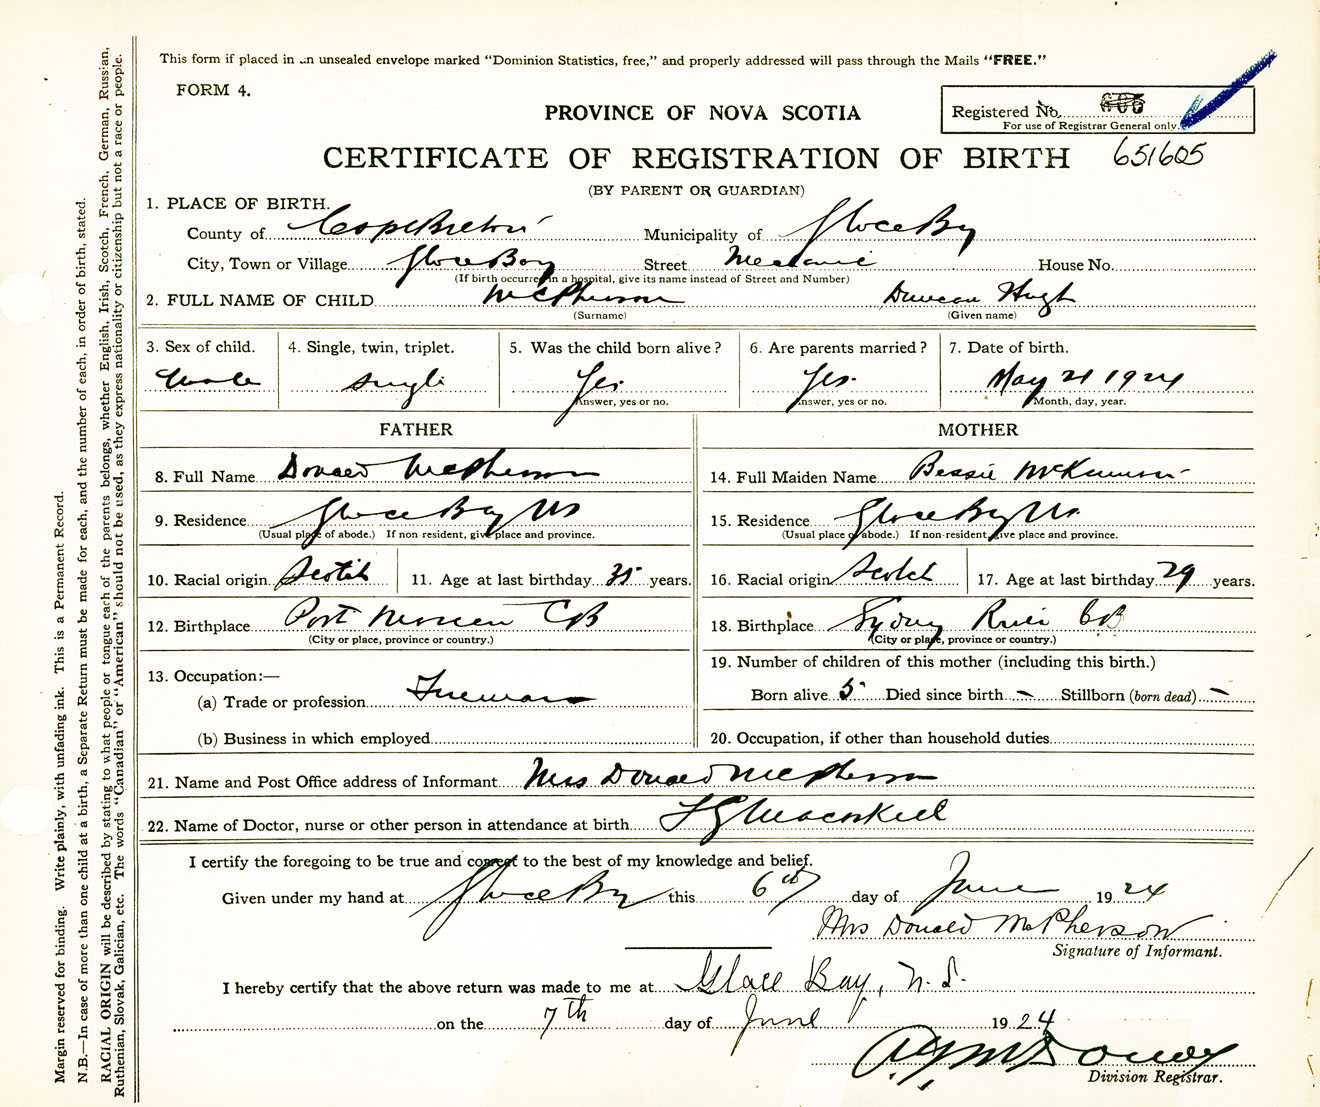 This form if placed in an unsealed envelope marked "Dominion Statistics, free," and properly addressed will pass through the Mails "FREE."
FORM 4.
PROVINCE OF NOVA SCOTIA
Registered No.
For use of Registrar General only.
CERTIFICATE OF REGISTRATION OF BIRTH 651605
(BY PARENT OR GUARDIAN)
1. PLACE OF BIRTH.
County of Cape Breton Municipality of Glace Bay
City, Town or Village Glace Bay Street Mechanic House No.
(If birth occurred in a hospital, give its name instead of Street and Number)
2. FULL NAME OF CHILD McPherson Duncan Hugh
(Surname) (Given name)
3. Sex of child. 4. Single, twin, triplet. 5. Was the child born alive? 6. Are parents married? 7. Date of birth.
Male Single Yes. Yes. May 21 1924
Answer, yes or no. Answer, yes or no. Month, day, year.
FATHER
8. Full Name Donald McPherson
9. Residence Glace Bay NS
(Usual place of abode.) If non resident, give place and province.
10. Racial origin Scotch 11. Age at last birthday 35 years.
12. Birthplace Port Morien CB
(City or place, province or country.)
13. Occupation:—
(a) Trade or profession Fireman
(b) Business in which employed
MOTHER
14. Full Maiden Name Bessie McKinnon
15. Residence Glace Bay NS.
(Usual place of abode.) If non-resident, give place and province.
16. Racial origin Scotch 17. Age at last birthday 29 years.
18. Birthplace Sydney River CB
(City or place, province or country.)
19. Number of children of this mother (including this birth.)
Born alive 5 Died since birth – Stillborn (born dead) –
20. Occupation, if other than household duties
21. Name and Post Office address of Informant Mrs Donald McPherson
22. Name of Doctor, nurse or other person in attendance at birth Macaskill
I certify the foregoing to be true and correct to the best of my knowledge and belief.
Given under my hand at Glace Bay this 6th day of June 1924
Mrs Donald McPherson
Signature of Informant.
I hereby certify that the above return was made to me at Glace Bay, N.S.
on the 7th day of June 1924
Division Registrar.
Margin reserved for binding. Write plainly, with unfading ink. This is a Permanent Record.
N.B.—In case of more than one child at a birth, a Separate Return must be made for each, and the number of each, in order of birth, stated.
RACIAL ORIGIN will be described by stating to what people or tongue each of the parents belongs, whether English, Irish, Scotch, French, German, Russian,
Ruthenian, Slovak, Galician, etc. The words "Canadian" or "American" should not be used, as they express nationality or citizenship but not a race or people.